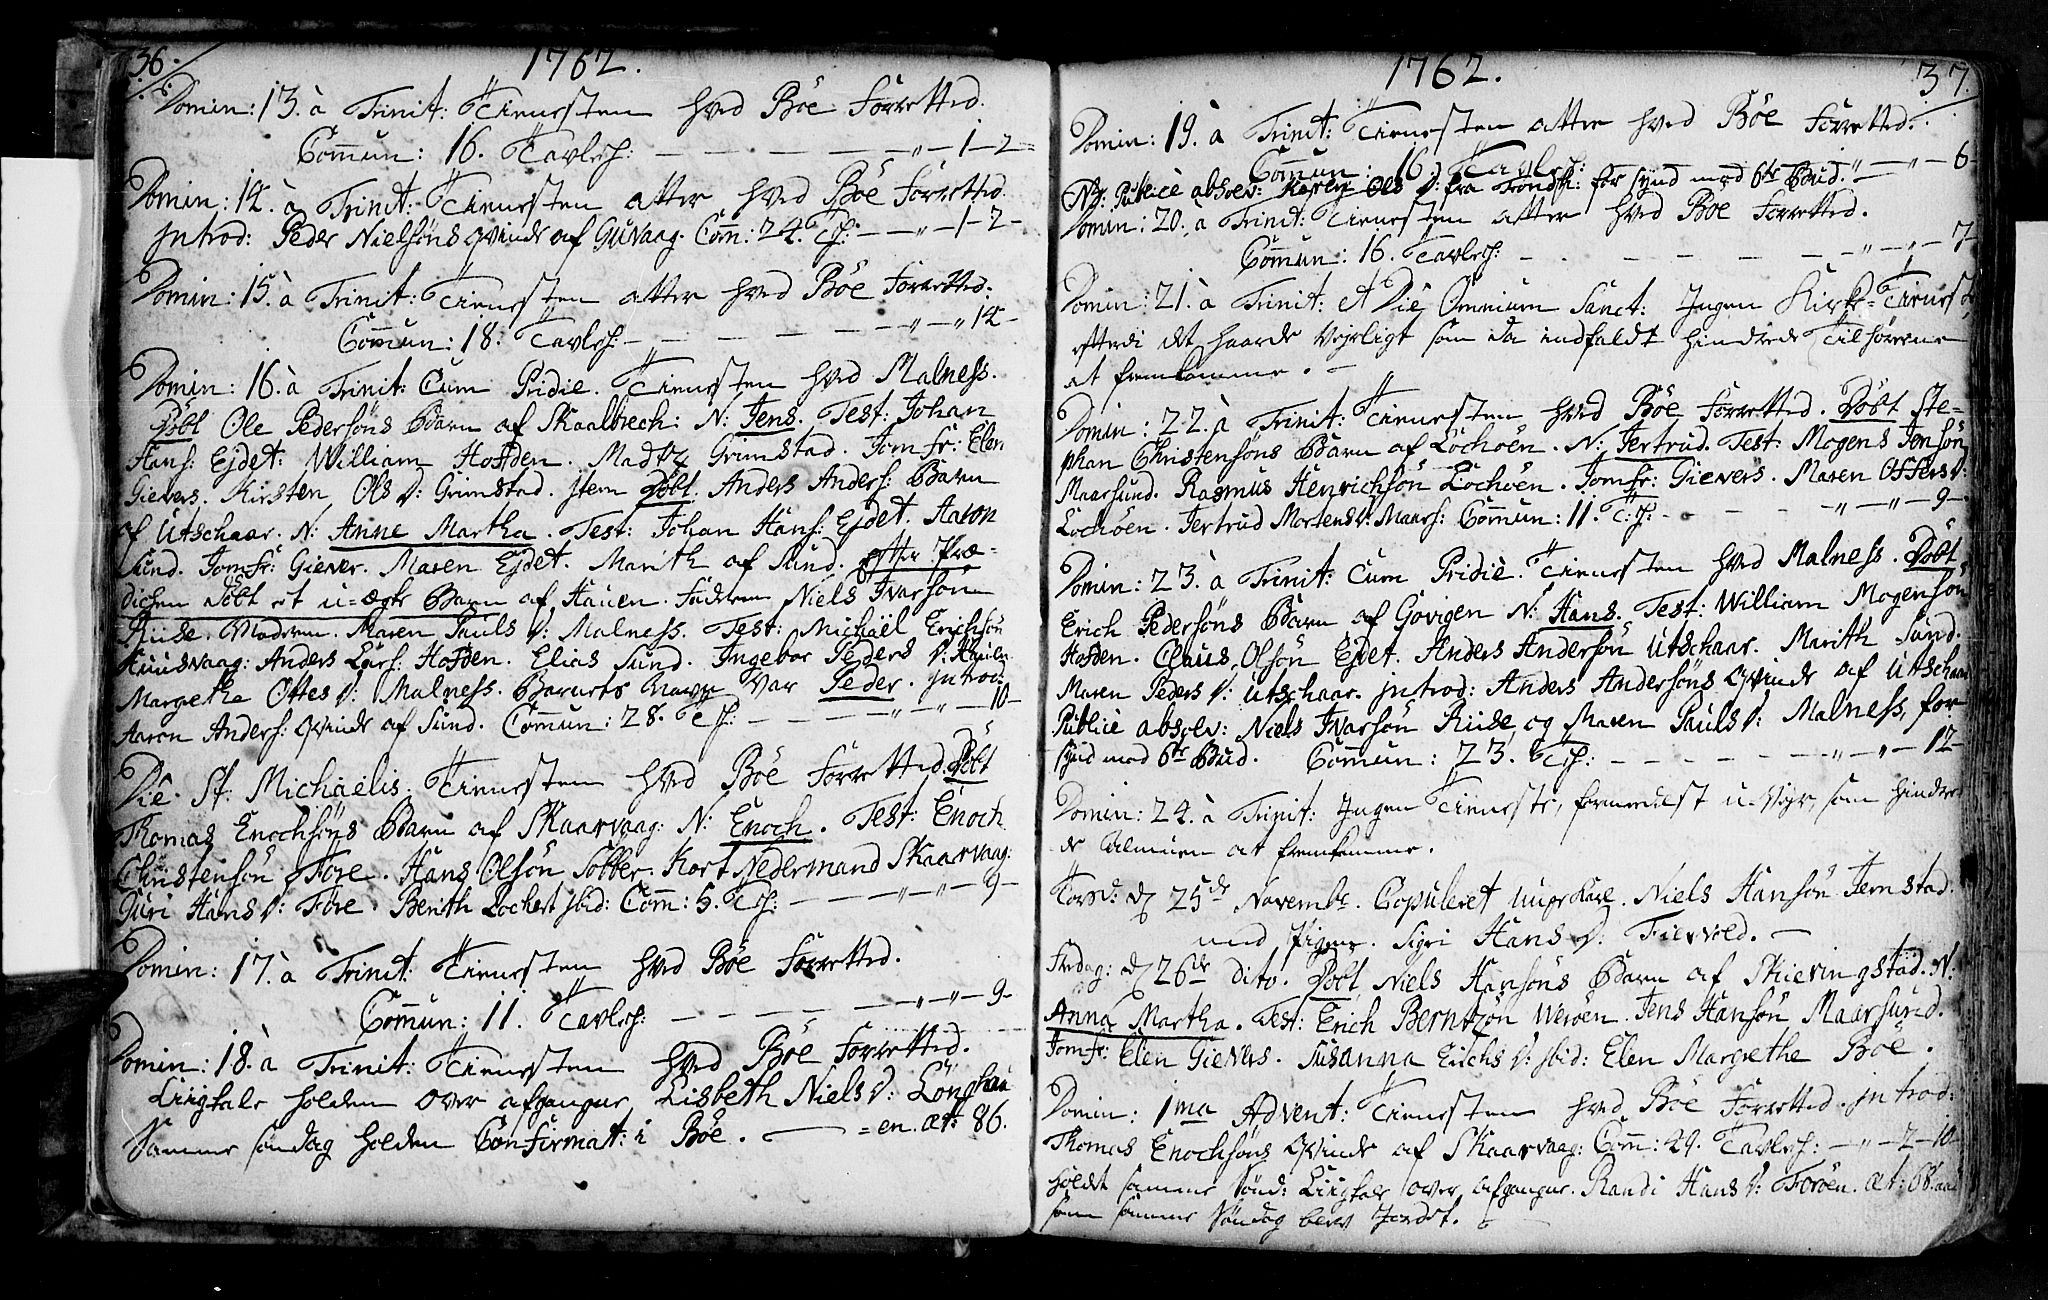 36.
1762.
Domin: 13. à Trinit: Tienesten hved Böe Forretted.
Com̄un: 16. Tavlesch: — — — — „ — 1 — 2 —
Domin: 14. à Trinit: Tienesten atter hved Böe Forretted.
introd: Peder Nielsöns Qvinde af Guvaag. Com̄: 24. Tsch: — — „ — 1 — 2 —
Domin: 15. à Trinit: Tienesten atter hved Böe Forretted.
Com̄un: 18. Tavlesch: — — — — „ — „ 14 —
Domin: 16. à Trinit: Cum Pridie. Tienesten hved Malness.
Döbt Ole Pedersöns Barn af Skaalbrech: N: Jens. Test: Johan
Hans: Ejdet: William Hofden. Madtz Grimstad. Jomfr: Elen
Gievers. Kirsten Ols D: Grimstad. item Döbt Anders Anders: Barn
af Utschaar. N: Anne Martha. Test: Johan Hans: Ejdet. Aaron
Sund. Jomfr: Giever. Maren Ejdet. Marith af Sund. Efter Præ-
dichen Döbt et u-ægte Barn af Hauen. Faderen Niels Ivarsön
Riise. Moderen. Maren Pauls D: Malness. Test: Michaël Erichsön
Kunsvaag: Anders Lars: Hofden. Elias Sund. Ingebor Peders D: Hauen.
Margrethe Ottes D: Malness. Barnets Navn Var Peder. introd:
Aaron Anders: Qvinde af Sund. Com̄un: 28. Tsch: — — — „ — „ — 10 —
Die St. Michaëlis. Tienesten hved Böe Forretted. Döbt
Thomas Enochsöns Barn af Skaarvaag: N: Enoch. Test: Enoch
Christensön Före. Hans Olsön Sobber. Kort Nedermand Skaarvaag:
Guri Hans D: Före. Berith Lochert ibid: Com̄: 5. Tsch: — — „ — „ — 9 —
Domin: 17. à Trinit: Tienesten hved Böe Forretted.
Com̄un: 11. Tavlesch: — — — — „ — „ — 9 —
Domin: 18. à Trinit: Tienesten hved Böe Forretted.
Liigtale holden over afgangne Lisbeth Niels D: Longhau
Samme söndag holden Confirmat: i Böe. — = en. æt: 86.
1762.
37.
Domin: 19. à Trinit: Tienesten atter hved Böe Forretted.
Com̄un: 16. Tavlesch: „ — „ — 6 —
Publicè absolv: Karen Ols D: fra Trondh: for synd mod 6te Bud.
Domin: 20. à Trinit: Tienesten atter hved Böe Forretted.
Com̄un: 16. Tavlesch: — — — — „ — „ — 7 —
Domin: 21. à Trinit: et Die Omnium Sanct: Ingen Kirke-Tieneste
efterdi det haarde Vejrligt som da indfaldt hindrede Tilhörerne
at fremkomme. —
Domin: 22. à Trinit: Tienesten hved Böe Forretted. Döbt Ste-
phan Christensöns Barn af Lochöen. N: Jertrud. Test: Mogens Jensön
Maarsund. Rasmus Henrichsön Lochöen. Jomfr: Gievers. Maren Offers D:
Lochöen. Jertrud Mortens D: Maars: Com̄un: 11. Tsch: — — — „ — „ — 9 —
Domin: 23. à Trinit: Cum Pridiè. Tienesten hved Malness. Döbt
Erich Pedersöns Barn af Govigen N: Hans. Test: William Mogensön
Hofden. Claus Olsön Ejdet. Anders Andersön Utschaar. Marith Sund.
Maren Peders D: Utschaar. introd: Anders Andersöns Qvinde af Utschaar
Publicè absolv: Niels Ivarsön Riise og Maren Pauls D: Malness, for
synd mod 6te Bud. Com̄un: 23. Tsch: — — — „ — „ — 12 —
Domin: 24. à Trinit: Ingen Tieneste, formedelst u-Vejr, som hindre-
de Almuen at fremkomme.
Torsd: d 25de Novembr. Copuleret unge Karl. Niels Hansön Jernstad.
med Pigen. Sigri Hans D: Fiervold. —
Fredag: d 26de dito. Döbt Niels Hansöns Barn af Skieringstad. N:
Anna Martha. Test: Erich Berntzön Weröen. Jens Hansön Maarsund.
Jomfr: Elen Gievers. Susanna Erichs D: ibid: Elen Margrethe Böe.
Domin: 1ma Advent: Tienesten hved Böe Forretted. introd:
Thomas Enochsöns Qvinde af Skaarvaag: Com̄: 49. Tavlesch: — „ — 2 — 10 —
holdt samme Sönd: Liigtale over afgangne. Randi Hans D: Foröen. æt: 68. aar
som samme Söndag blev Jordet.